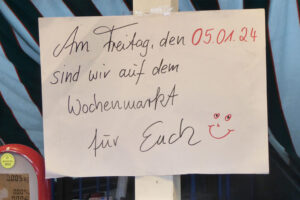 Am Freitag, den 05.01.24
sind wir auf dem
Wochenmarkt
für Euch